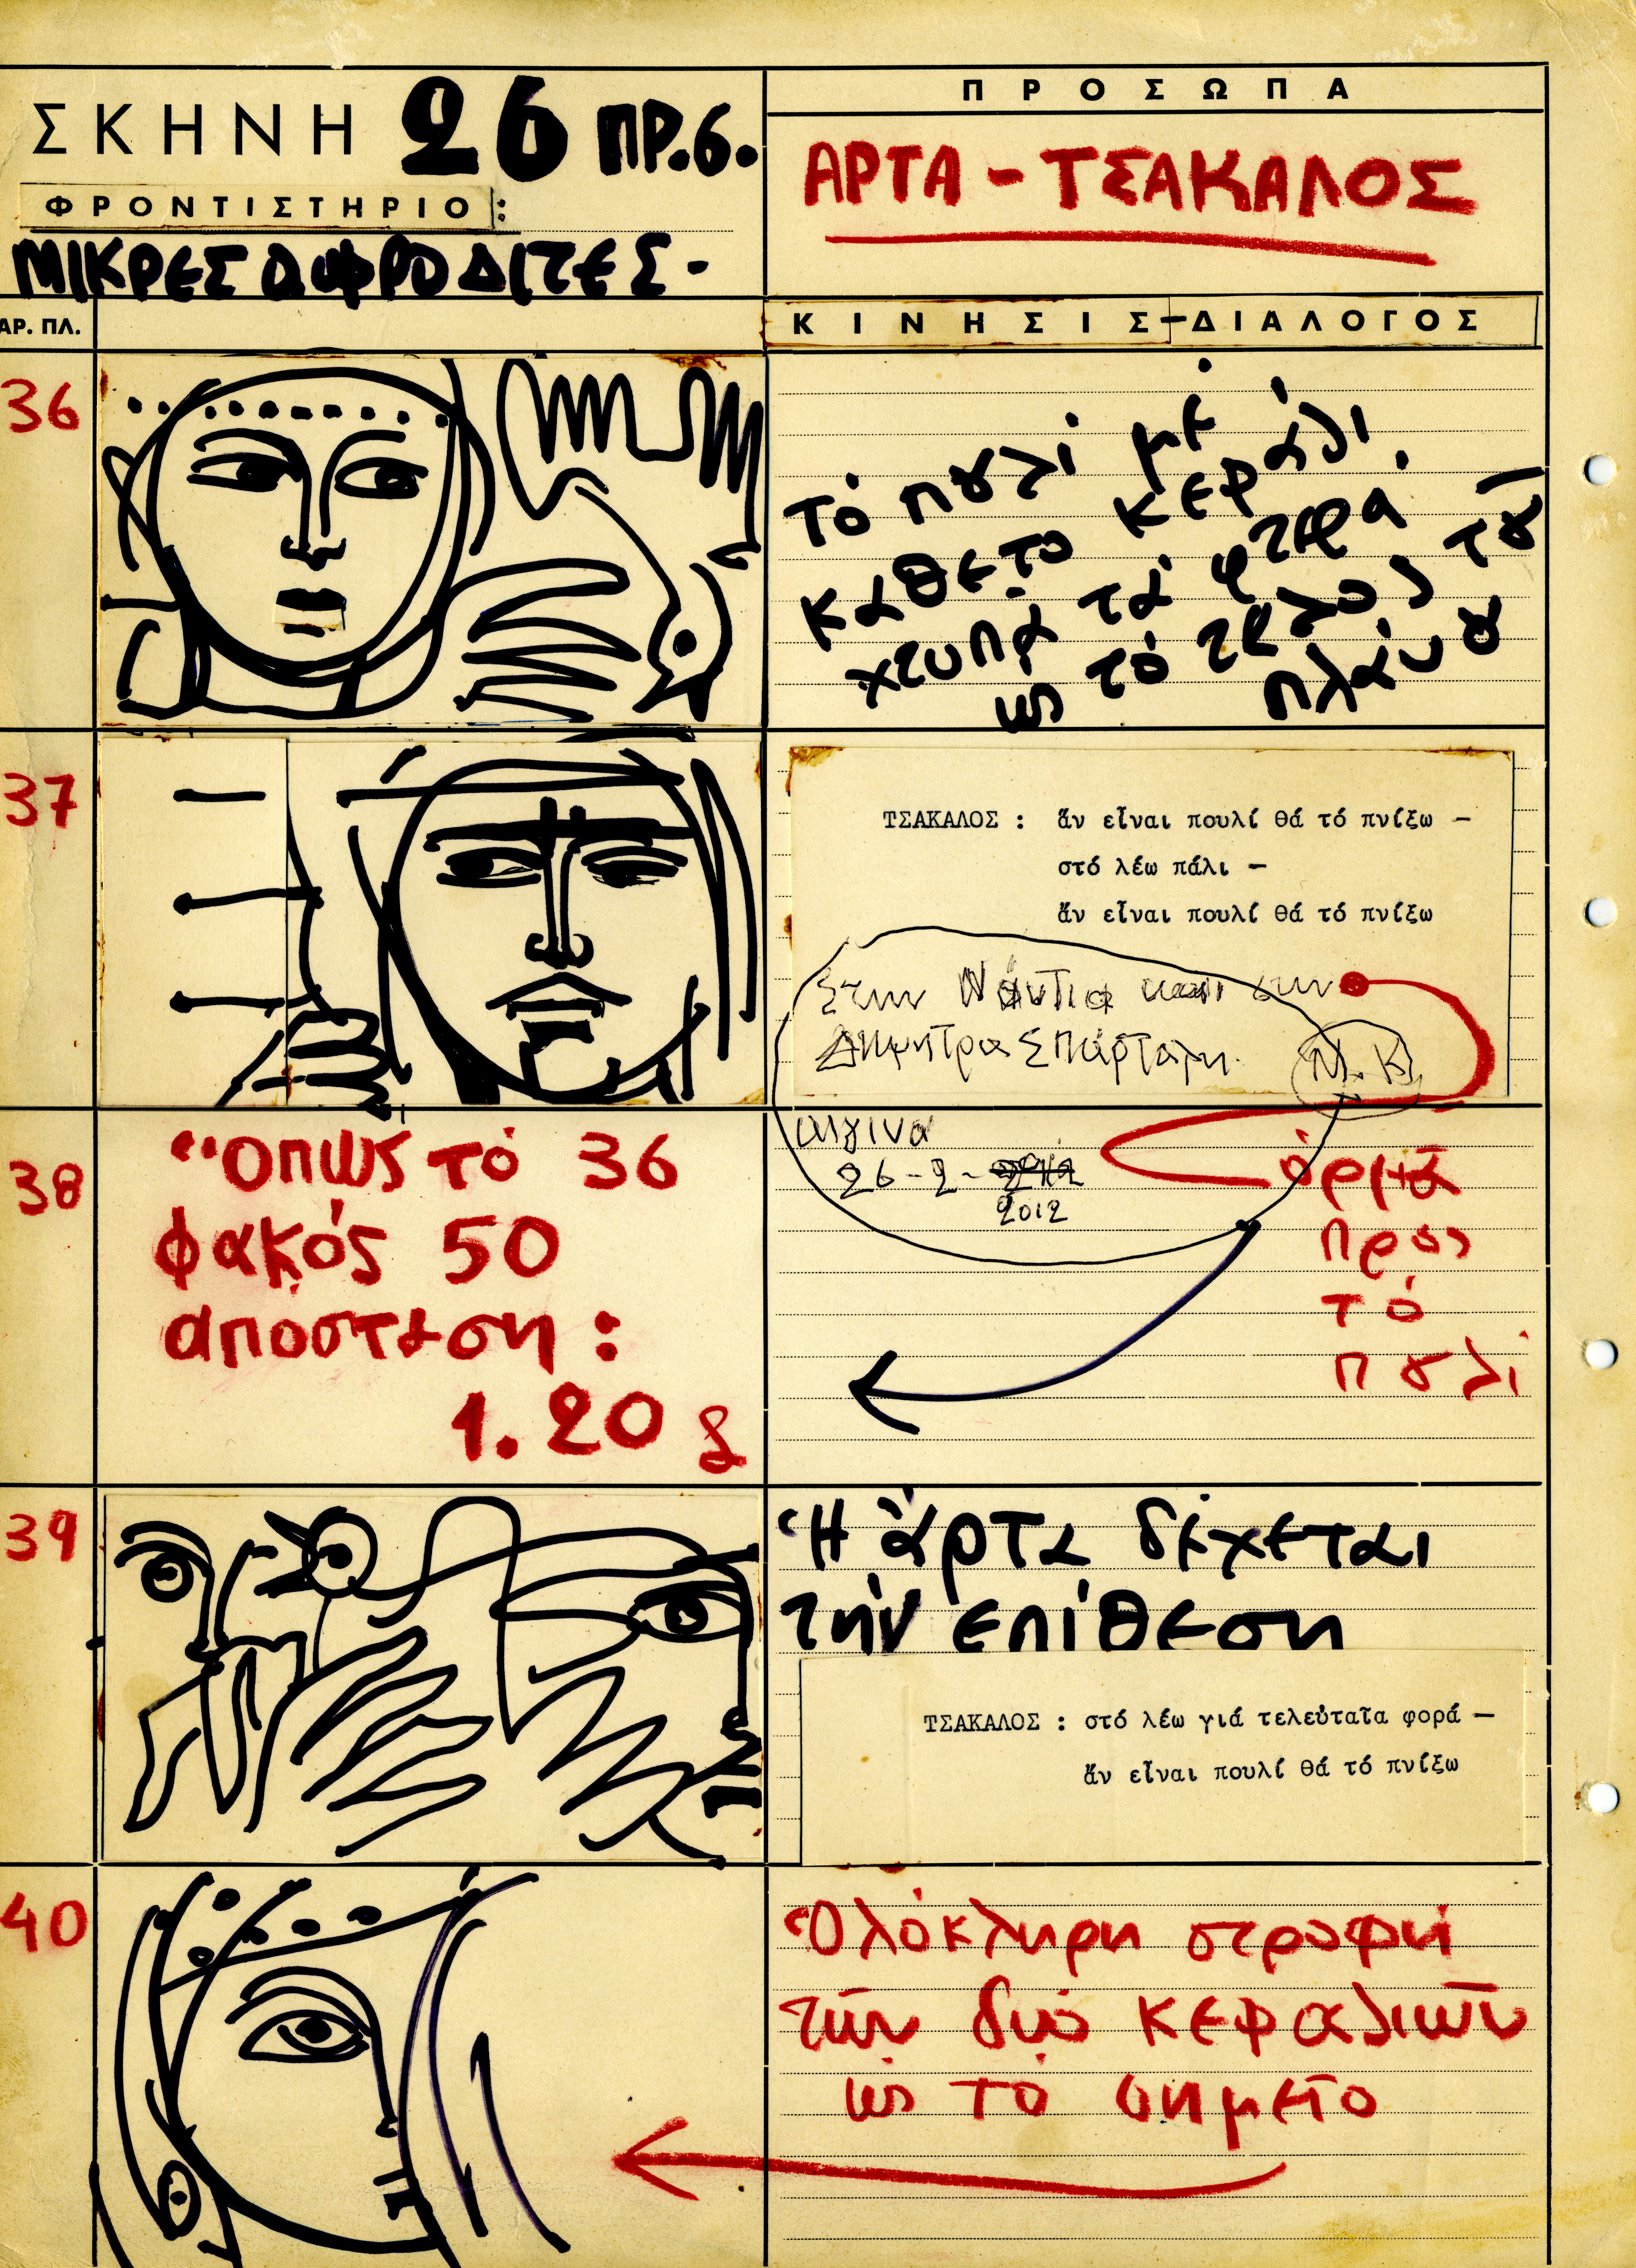 ΣΚΗΝΗ 26 ΠΡ.6.
ΦΡΟΝΤΙΣΤΗΡΙΟ:
ΜΙΚΡΕΣ ΑΦΡΟΔΙΤΕΣ-
ΠΡΟΣΩΠΑ
ΑΡΤΑ - ΤΣΑΚΑΛΟΣ
ΑΡ. ΠΛ.
ΚΙΝΗΣΙΣ-ΔΙΑΛΟΓΟΣ
36
τό πουλί μέ
κάθετο κεφάλι.
χτυπᾶ τά φτερά.
ὡς τό τέλος τοῦ
πλάνου
37
ΤΣΑΚΑΛΟΣ : ἄν εἶναι πουλί θά τό πνίξω —
στό λέω πάλι —
ἄν εἶναι πουλί θά τό πνίξω
Στην Νάντια και στην
Δήμητρα Σπάρταλη.
Ν.Κ
38
Ὅπως τό 36
φακός 50
αποσταση :
1.20
Αιγινα
26-2-
2012
ὁρμᾶ
πρός
τό
πουλί
39
Ἡ ἄρτα δέχεται
τήν επίθεση
ΤΣΑΚΑΛΟΣ : στό λέω γιά τελεὐταῖα φορά —
ἄν εἶναι πουλί θά τό πνίξω
40
Ὁλόκληρη στροφή
τῶν δυό κεφαλιῶν
ὡς τό σημεῖο